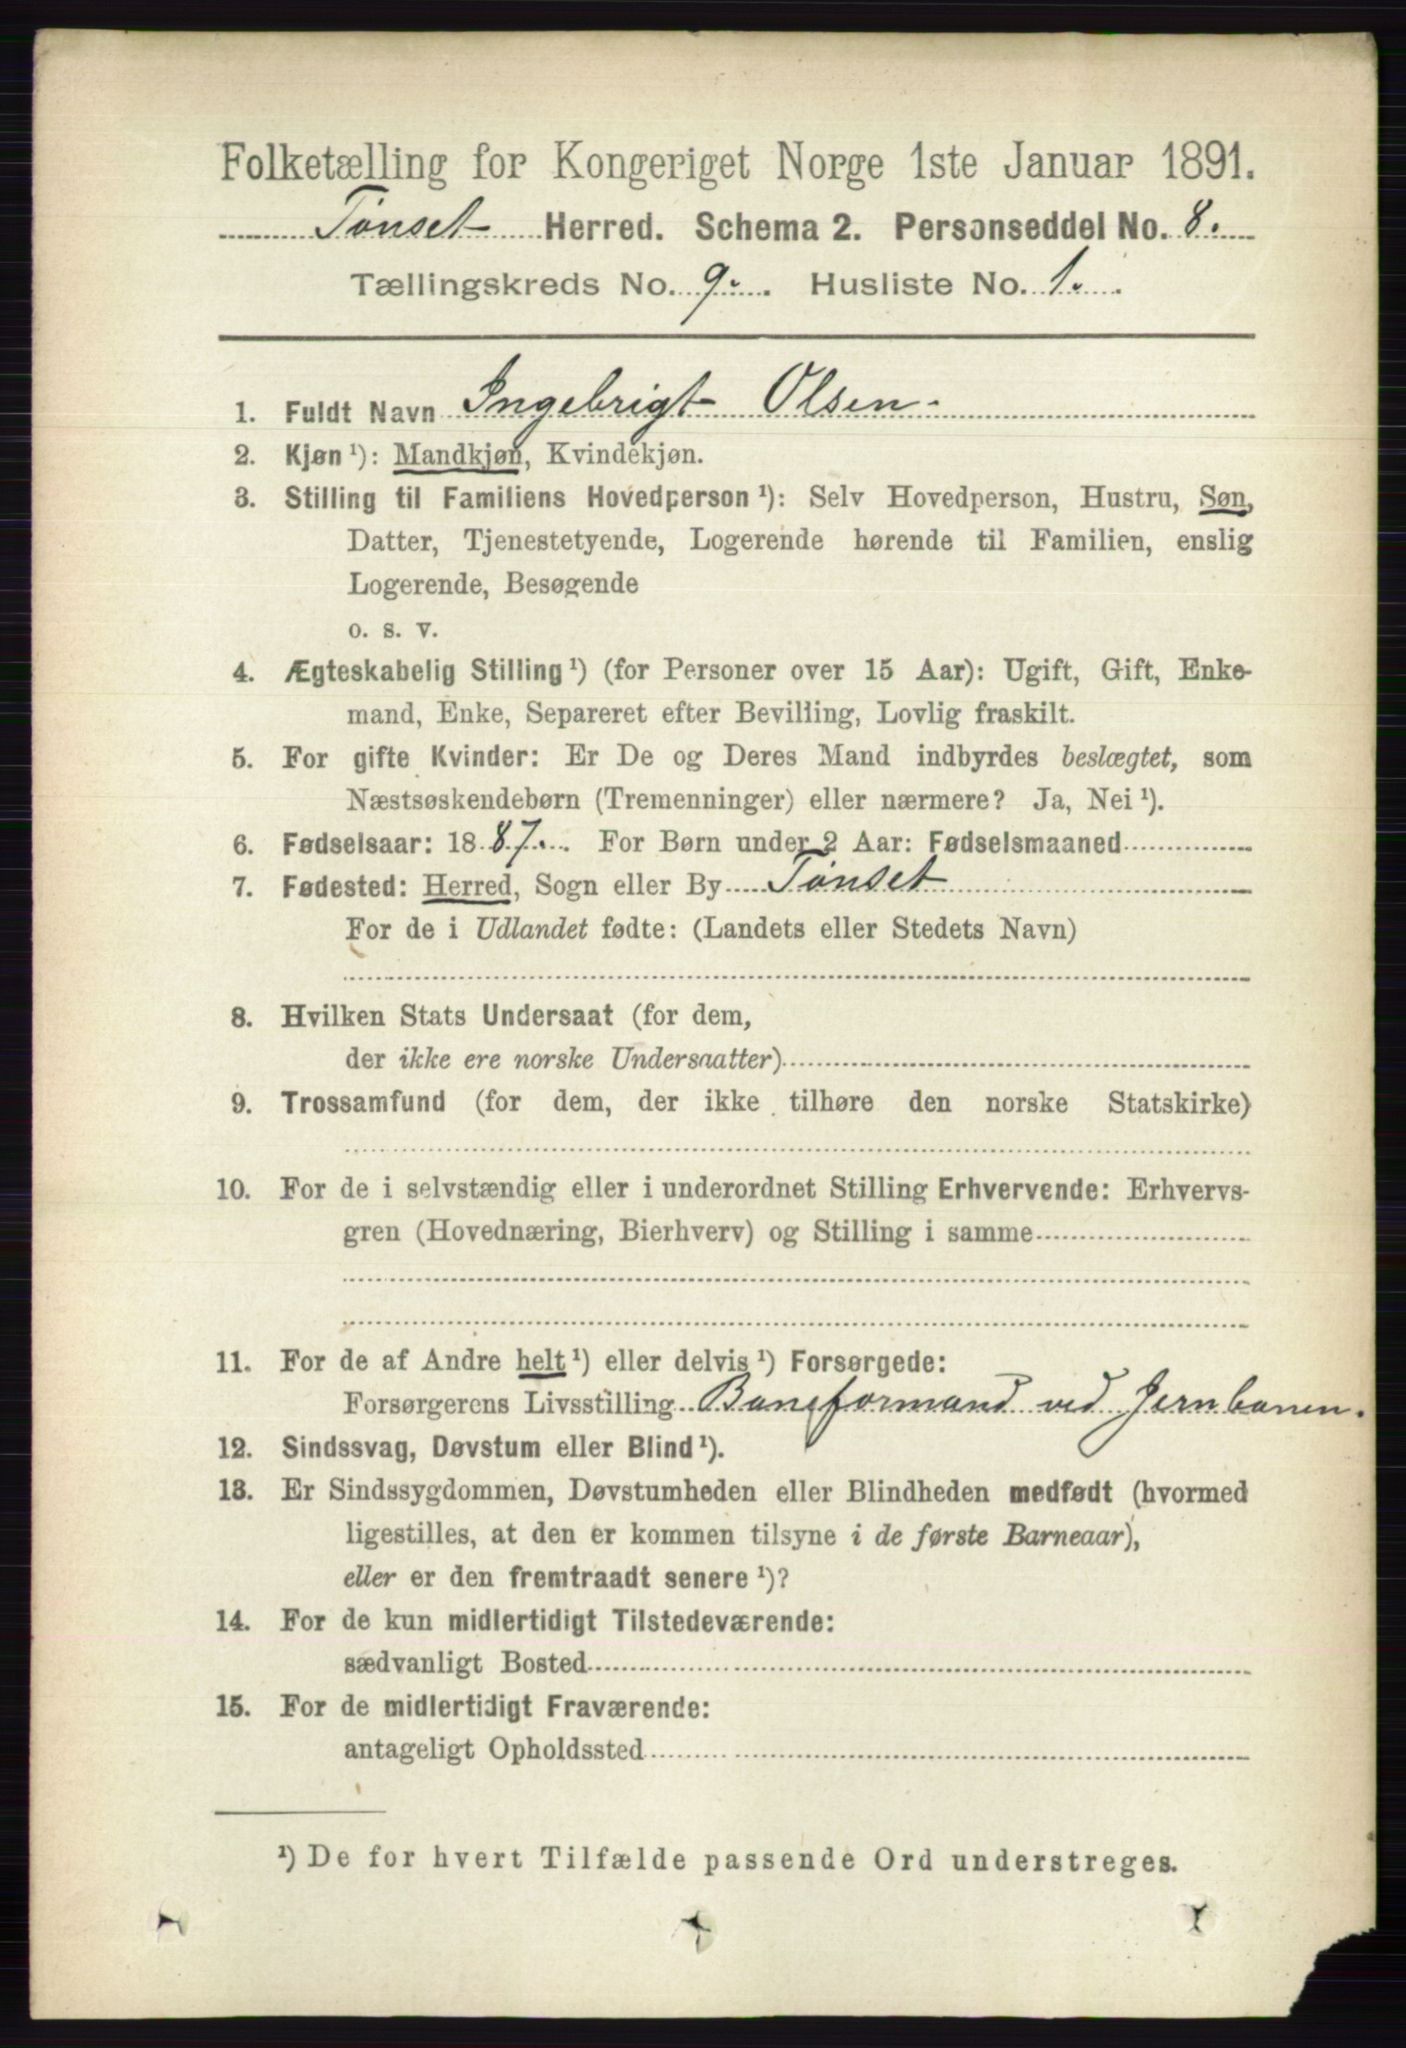 Folketælling for Kongeriget Norge 1ste Januar 1891.
Tønset Herred. Schema 2. Personseddel No. 8.
Tællingskreds No. 9. Husliste No. 1.
1. Fuldt Navn Ingebrigt Olsen.
2. Kjøn ¹): Mandkjøn, Kvindekjøn.
3. Stilling til Familiens Hovedperson ¹): Selv Hovedperson, Hustru, Søn,
Datter, Tjenestetyende, Logerende hørende til Familien, enslig
Logerende, Besøgende
o. s. v.
4. Ægteskabelig Stilling ¹) (for Personer over 15 Aar): Ugift, Gift, Enke-
mand, Enke, Separeret efter Bevilling, Lovlig fraskilt.
5. For gifte Kvinder: Er De og Deres Mand indbyrdes beslægtet, som
Næstsøskendebørn (Tremenninger) eller nærmere? Ja, Nei ¹).
6. Fødselsaar: 1887. For Børn under 2 Aar: Fødselsmaaned
7. Fødested: Herred, Sogn eller By Tønset
For de i Udlandet fødte: (Landets eller Stedets Navn)
8. Hvilken Stats Undersaat (for dem,
der ikke ere norske Undersaatter)
9. Trossamfund (for dem, der ikke tilhøre den norske Statskirke)
10. For de i selvstændig eller i underordnet Stilling Erhvervende: Erhvervs-
gren (Hovednæring, Bierhverv) og Stilling i samme
11. For de af Andre helt ¹) eller delvis ¹) Forsørgede:
Forsørgerens Livsstilling Baneformand ved Jernbanen.
12. Sindssvag, Døvstum eller Blind ¹).
13. Er Sindssygdommen, Døvstumheden eller Blindheden medfødt (hvormed
ligestilles, at den er kommen tilsyne i de første Barneaar),
eller er den fremtraadt senere ¹)?
14. For de kun midlertidigt Tilstedeværende:
sædvanligt Bosted
15. For de midlertidigt Fraværende:
antageligt Opholdssted
¹) De for hvert Tilfælde passende Ord understreges.